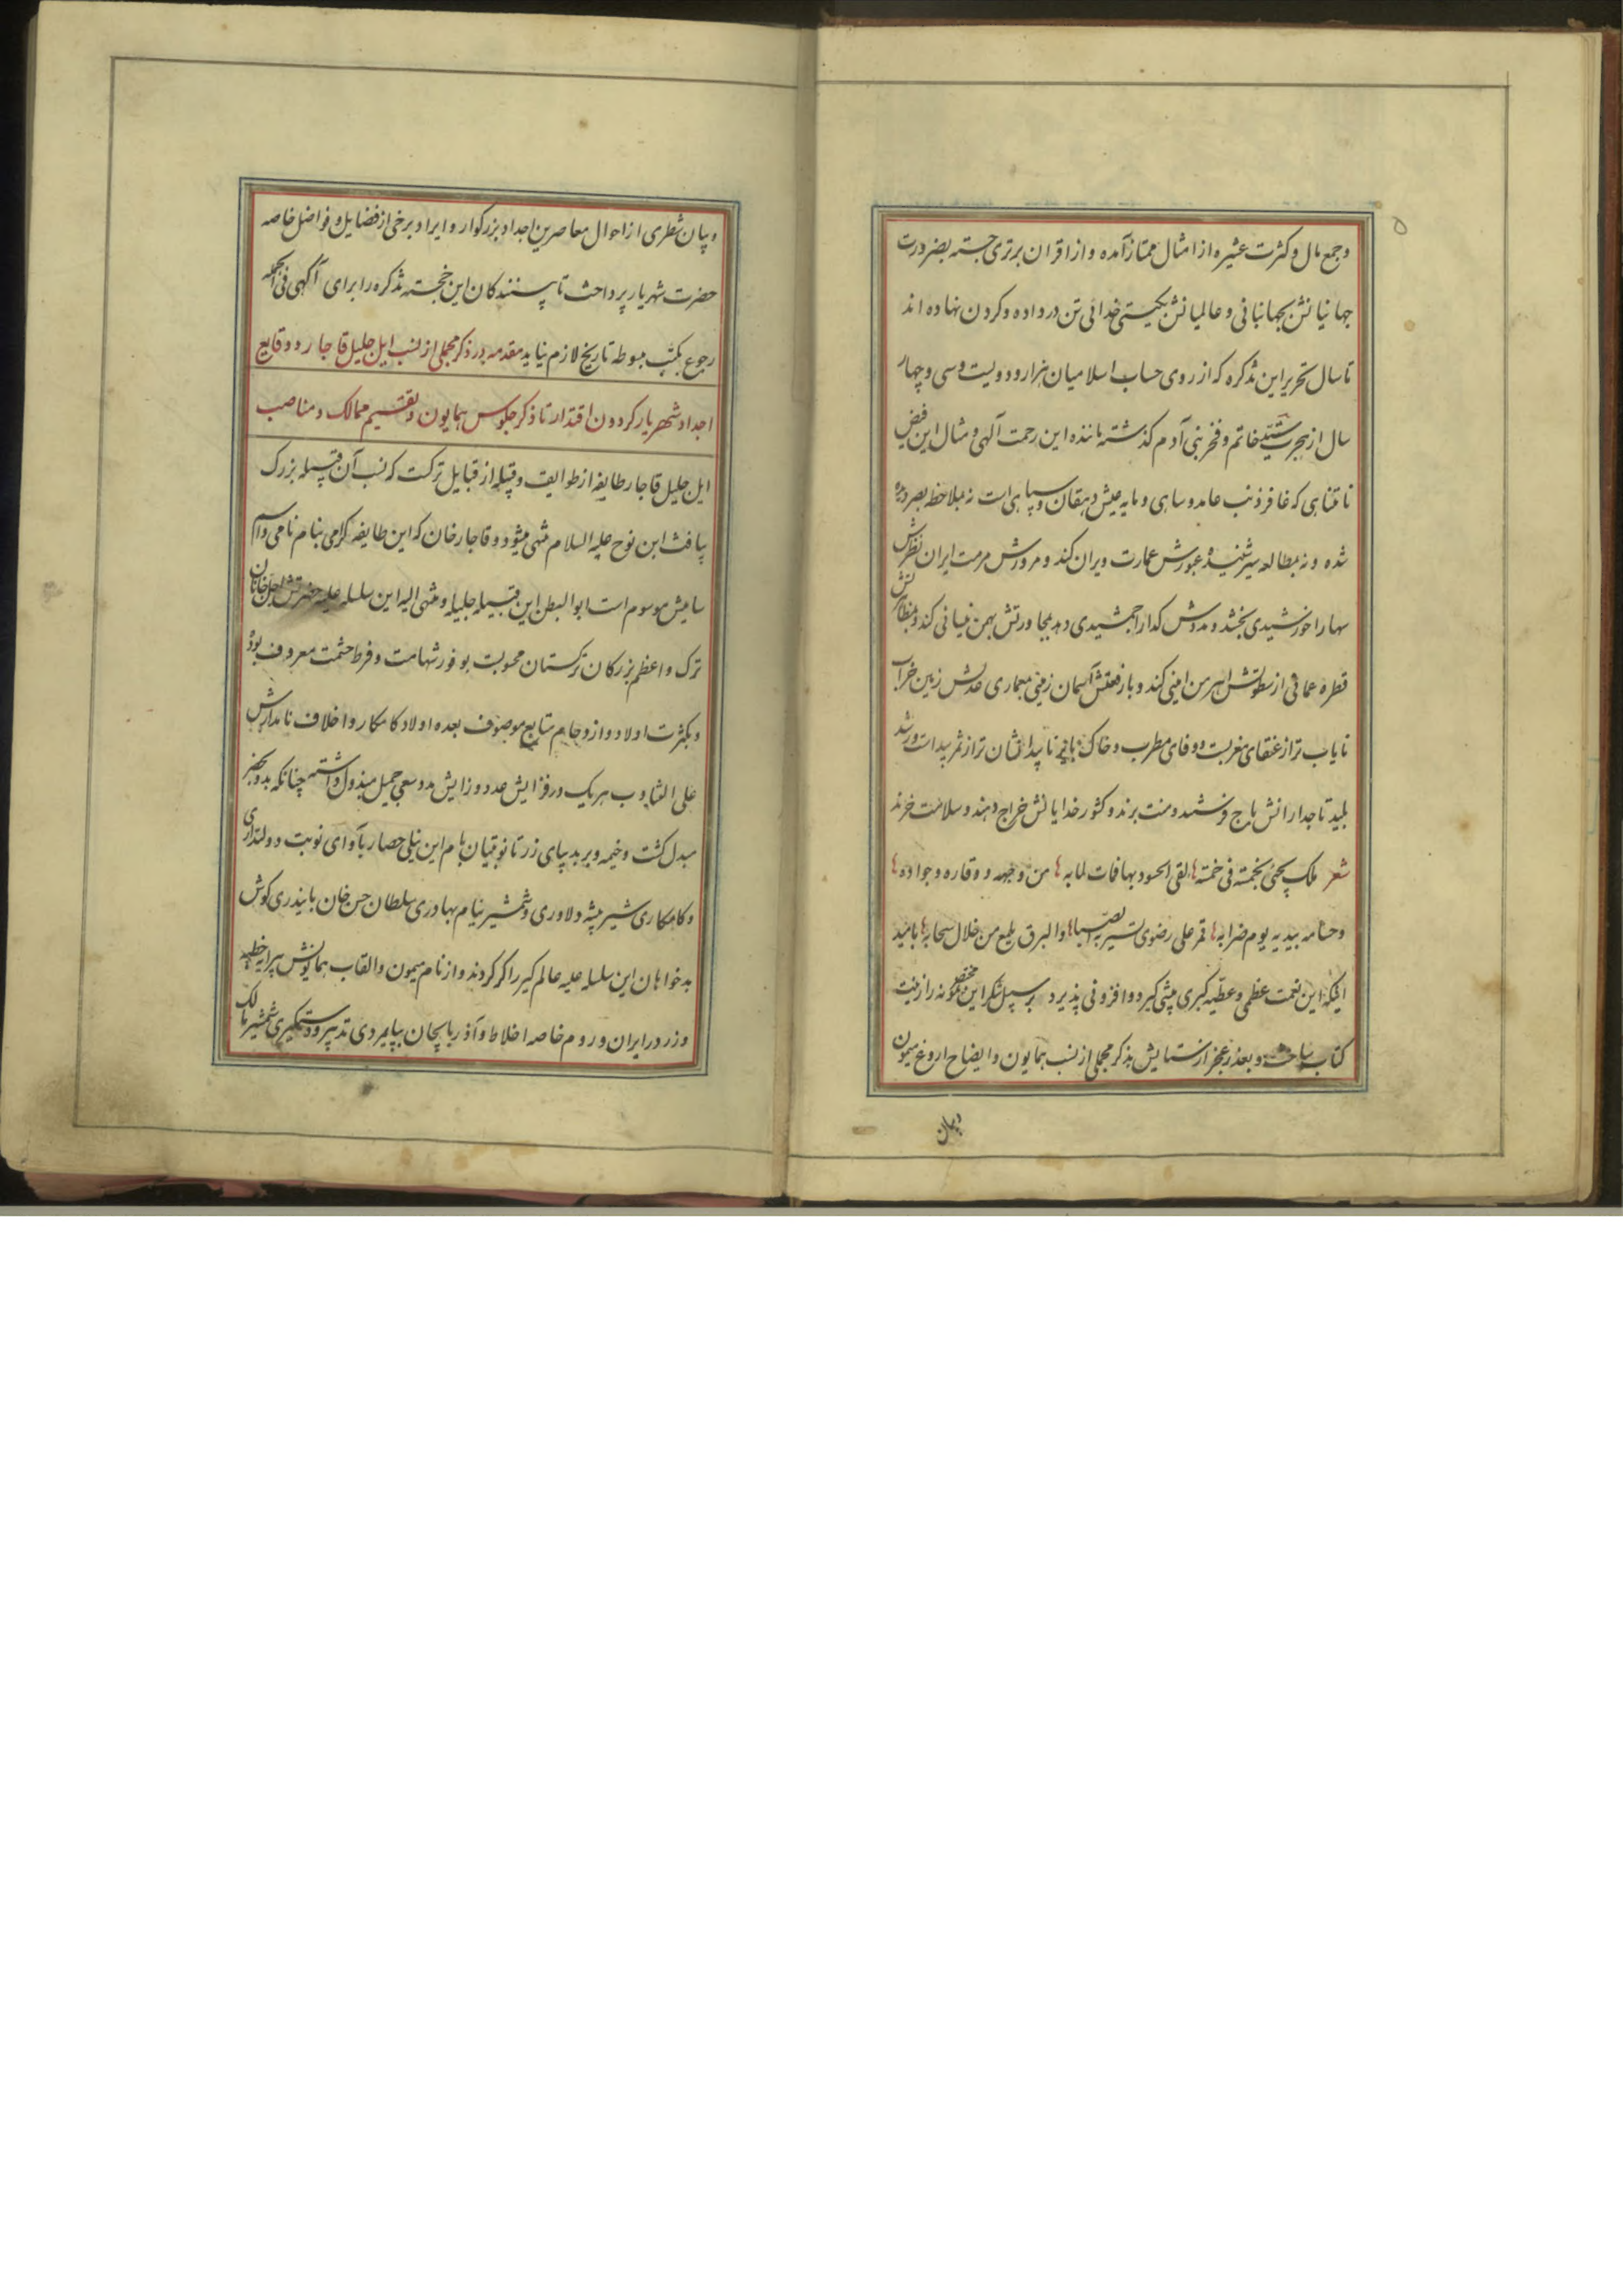 ۵
و جمع مال و کثرت عشیره از امثال ممتاز آمده و از اقران برتری جسته بضرورت
جهانیانش بجهانبانی و عالمیانش بکیتی خدائی تن در داده و کردن نهاده اند
تا سال تحریر این تذکره که از روی حساب اسلامیان هزار و دویست و سی و چهار
سال از هجرت سید خاتم و فخر بنی آدم کذشته ماننده این رحمت آلهی و مثال این فیض
نامتناهی که غافر ذنب عامد و ساهی و مایه عیش دهقان و سپاهی است نه بملاحظه بصر دیده
شده و نه بمطالعه سیر شنیده عبورش عمارت ویران کند و مرورش مرمت ایران نظرش
سها را خورشیدی بخشد و مدوش کدا را جمشیدی دهد مجاورتش بهمن میانی کند و
قطره عمانی از سطوتش اهرمن امینی کند و با رفعتش آسمان زمینی معماری عدلش زمین خراب
نایاب تر از عنقای مغربست و وفای مطرب و خاک ناپیدا نشان تر از
تاجدارانش باج فرستند و منت برند و کشور خدایانش خراج دهند و سلامت خرند
شعر ملک لقی الحسود بهافات لما به من وجهه و وقاره و جواده
و حسامه بیدیه یوم ضرابه قمر علی رضوی تسیر به الصبا والبرق یلمع من خلال سحابه بامید
اینکه این نعمت عظمی و عطیه کبری پیشی کیرد و افزونی پذیرد بر سبیل شکر این مختصر نمونه را زینت
کتاب ساخت و بعد از عجز از ستایش بذکر مجملی از نسب همایون و ایضاح اروغ میمون
و بیان
و بیان شطری از احوال معاصرین اجداد بزرکوار و ایراد برخی از فضایل و فواضل خاصه
حضرت شهریار پرداخت تا پسنندکان این خجسته تذکره را برای آکهی فی الجمله
رجوع بکتب مبسوطه تاریخ لازم نیاید مقدمه در ذکر مجملی از نسب ایل جلیل قاجار و وقایع
اجداد شهریار کردون اقتدار تا ذکر جلوس همایون و تقسیم ممالک و مناصب
ایل جلیل قاجار طایفه از طوایف و قبیله از قبایل ترکست که نسب آن قبیله بزرک
بیافث ابن نوح علیه السلام منتهی میشود و قاجار خان که این طایفه کرامی بنام نامی و اسم
سامیش موسوم است ابوالبطن این قبیله جلیله و منتهی الیه این سلسله علیه حضرتش از اجل خانان
ترک و اعظم بزرکان ترکستان محسوبست بوفور شهامت و فرط حشمت معروف بود
و بکثرت اولاد و ازدحام متابع موصوف بعده اولاد کامکار و اخلاف نامدارش
علی التناوب هریک در فزایش عدد و زایش مدد سعی جمیل مبذول داشته چنانکه
مبدل کشت و خیمه و بر بدیبای زر تا نوبتیان بام این نیلی حصار بآوای نوبت دولتداری
و کامکاری شیر بیشه دلاوری و شمشیر نیام بهادری سلطان حسن خان بایندری کوش
بدخواهان این سلسله علیه عالم کیر را کر کردند و از نام میمون و القاب همایونش پیرایه خطبه
و زر در ایران و روم خاصه اخلاط و آذربایجان بپایمردی تدبیر و دستکیری شمشیر مالک